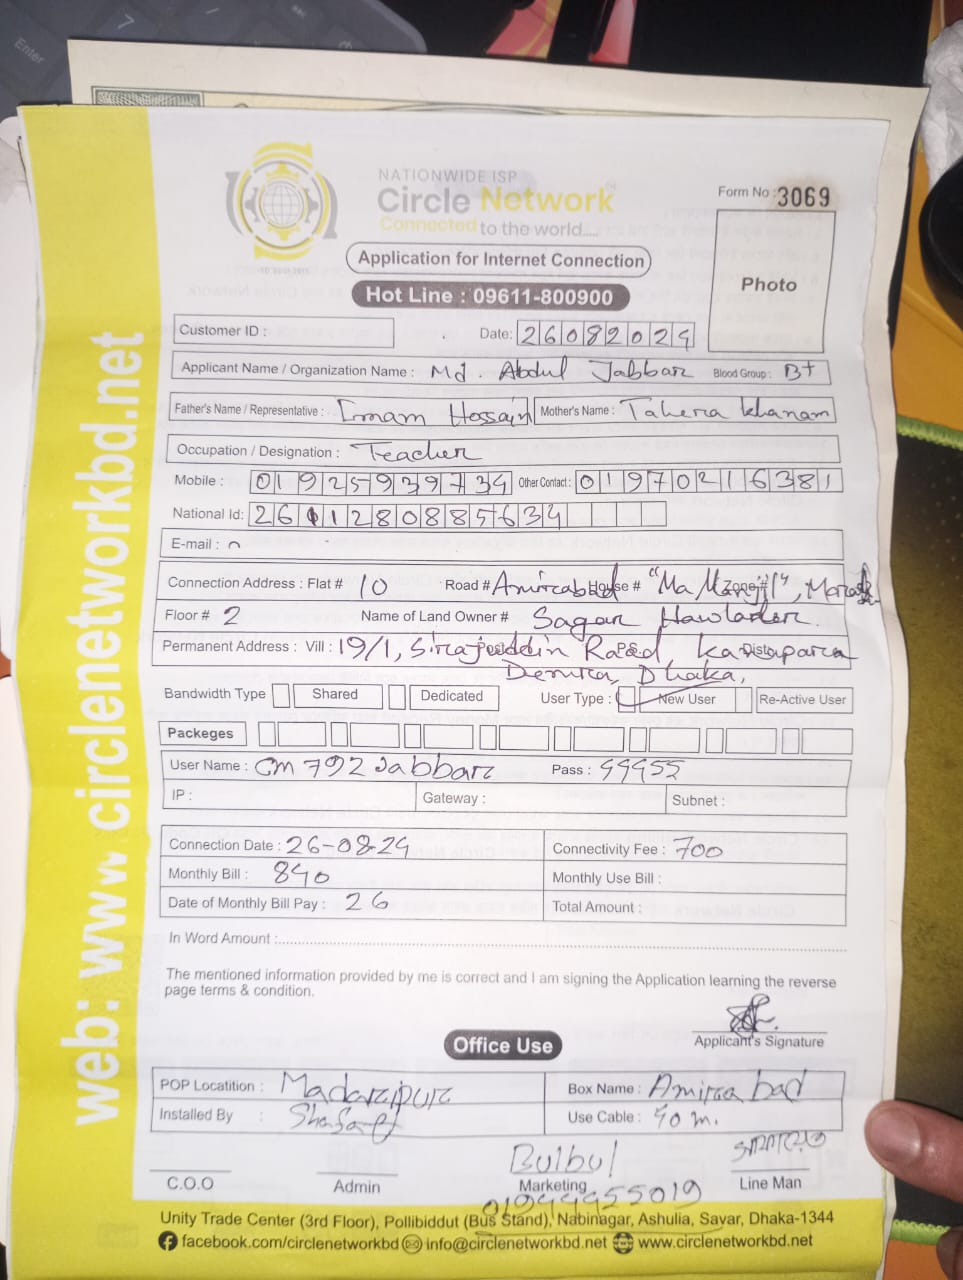 Enter
7
NATIONWIDE ISP
Circle Network
Connected to the world.....
Form No : 3069
Photo
Application for Internet Connection
Hot Line : 09611-800900
Customer ID :
Date: 26082024
Applicant Name / Organization Name : Md. Abdul Jabbar Blood Group : B+
Father's Name / Representative : Imam Hossain Mother's Name : Tahera Khanam
Occupation / Designation : Teacher
Mobile : 01925939734 Other Contact : 01970216381
National Id: 2611280885634
E-mail :
Connection Address : Flat # 10 Road # Amirabad House # "Ma Manjil" Zone #
Floor # 2 Name of Land Owner # Sagar Hawlader.
Permanent Address : Vill : 19/1, Sirajuddin Road, P.S: Dist:
Demra, Dhaka,
Bandwidth Type Shared Dedicated User Type : New User Re-Active User
Packeges
User Name : cm792Jabbar Pass : 44455
IP : Gateway : Subnet :
Connection Date : 26-08-24 Connectivity Fee : 700
Monthly Bill : 840 Monthly Use Bill :
Date of Monthly Bill Pay : 26 Total Amount :
In Word Amount :
The mentioned information provided by me is correct and I am signing the Application learning the reverse
page terms & condition.
Applicant's Signature
Office Use
POP Locatition : Madaripur Box Name : Amirabad
Installed By : Use Cable : 40 m.
Bulbul
C.O.O Admin Marketing Line Man
01944455019
Unity Trade Center (3rd Floor), Pollibiddut (Bus Stand), Nabinagar, Ashulia, Savar, Dhaka-1344
facebook.com/circlenetworkbd info@circlenetworkbd.net www.circlenetworkbd.net
web: www.circlenetworkbd.net